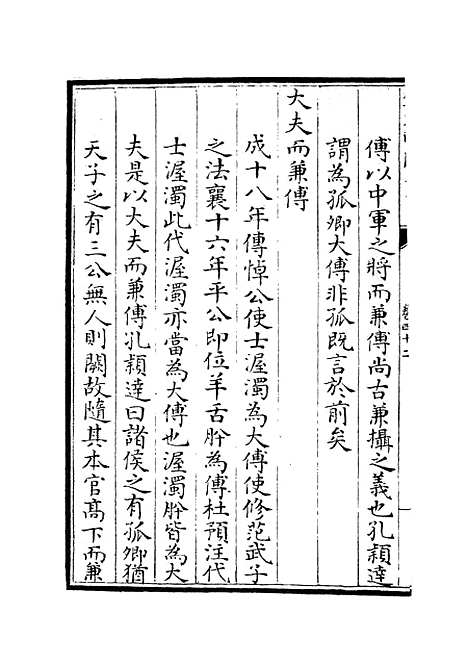 傅以中軍之將而兼傅尚古兼攝之義也孔穎達
謂為孤卿大傅非孤既言於前矣
大夫而兼傅
成十八年傳悼公使士渥濁為大傅使修范武子
之法襄十六年平公即位羊舌肸為傅杜預注代
士渥濁此代渥濁亦當為大傅也渥濁肸皆為大
夫是以大夫而兼傅孔穎達曰諸侯之有孤卿猶
天子之有三公無人則闕故隨其本官髙下而兼